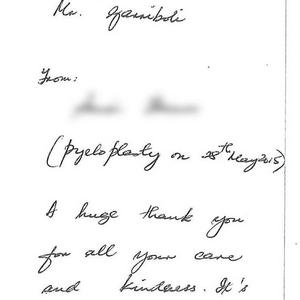 Mr. Garriboli
From:
(pyeloplasty on 28th May 2015)
A huge thank you
for all your care
and kindness. It's